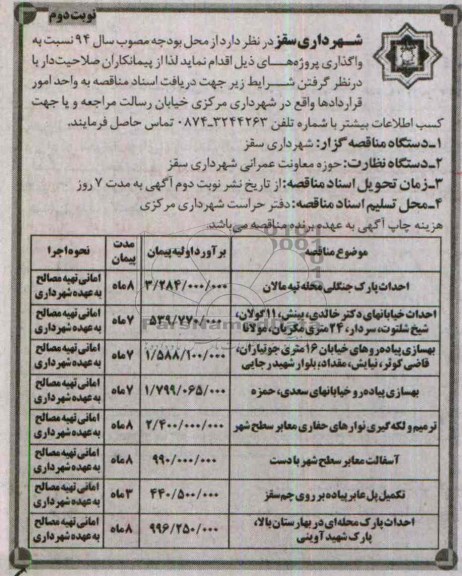 نوبت دوم
شهرداری سقز در نظر دارد از محل بودجه مصوب سال ۹۴ نسبت به
واگذاری پروژه‌های ذیل اقدام نماید لذا از پیمانکاران صلاحیت‌دار با
درنظر گرفتن شرایط زیر جهت دریافت اسناد مناقصه به واحد امور
قراردادها واقع در شهرداری مرکزی خیابان رسالت مراجعه و یا جهت
کسب اطلاعات بیشتر با شماره تلفن ۳۲۴۴۲۶۳-۰۸۷۴ تماس حاصل فرمایند.
۱-دستگاه مناقصه گزار: شهرداری سقز
۲-دستگاه نظارت: حوزه معاونت عمرانی شهرداری سقز
۳-زمان تحویل اسناد مناقصه: از تاریخ نشر نوبت دوم آگهی به مدت ۷ روز
۴-محل تسلیم اسناد مناقصه: دفتر حراست شهرداری مرکزی
هزینه چاپ آگهی به عهده برنده مناقصه می‌باشد.
موضوع مناقصه برآورد اولیه پیمان مدت پیمان نحوه اجرا
احداث پارک جنگلی محله تپه مالان ۳/۲۸۴/۰۰۰/۰۰۰ ۸ماه امانی تهیه مصالح به عهده شهرداری
احداث خیابانهای دکتر خالدی، بینش، ۱۱گولان،
شیخ شلتوت، سردار، ۲۴ متری مکریان، مولانا ۵۳۹/۷۷۰/۰۰۰ ۷ماه امانی تهیه مصالح به عهده شهرداری
بهسازی پیاده‌روهای خیابان ۱۶متری جوتیاران،
قاضی کوثر، نیایش، مقداد، بلوار شهید رجایی ۱/۵۸۸/۱۰۰/۰۰۰ ۷ماه امانی تهیه مصالح به عهده شهرداری
بهسازی پیاده‌رو خیابانهای سعدی، حمزه ۱/۷۹۹/۰۶۵/۰۰۰ ۷ماه امانی تهیه مصالح به عهده شهرداری
ترمیم و لکه گیری نوارهای حفاری معابر سطح شهر ۲/۴۰۰/۰۰۰/۰۰۰ ۸ماه امانی تهیه مصالح به عهده شهرداری
آسفالت معابر سطح شهر با دست ۹۹۰/۰۰۰/۰۰۰ ۸ماه امانی تهیه مصالح به عهده شهرداری
تکمیل پل عابر پیاده بر روی چم سقز ۴۴۰/۵۰۰/۰۰۰ ۳ماه امانی تهیه مصالح به عهده شهرداری
احداث پارک محله‌ای در بهارستان بالا،
پارک شهید آوینی ۹۹۶/۲۵۰/۰۰۰ ۸ماه امانی تهیه مصالح به عهده شهرداری